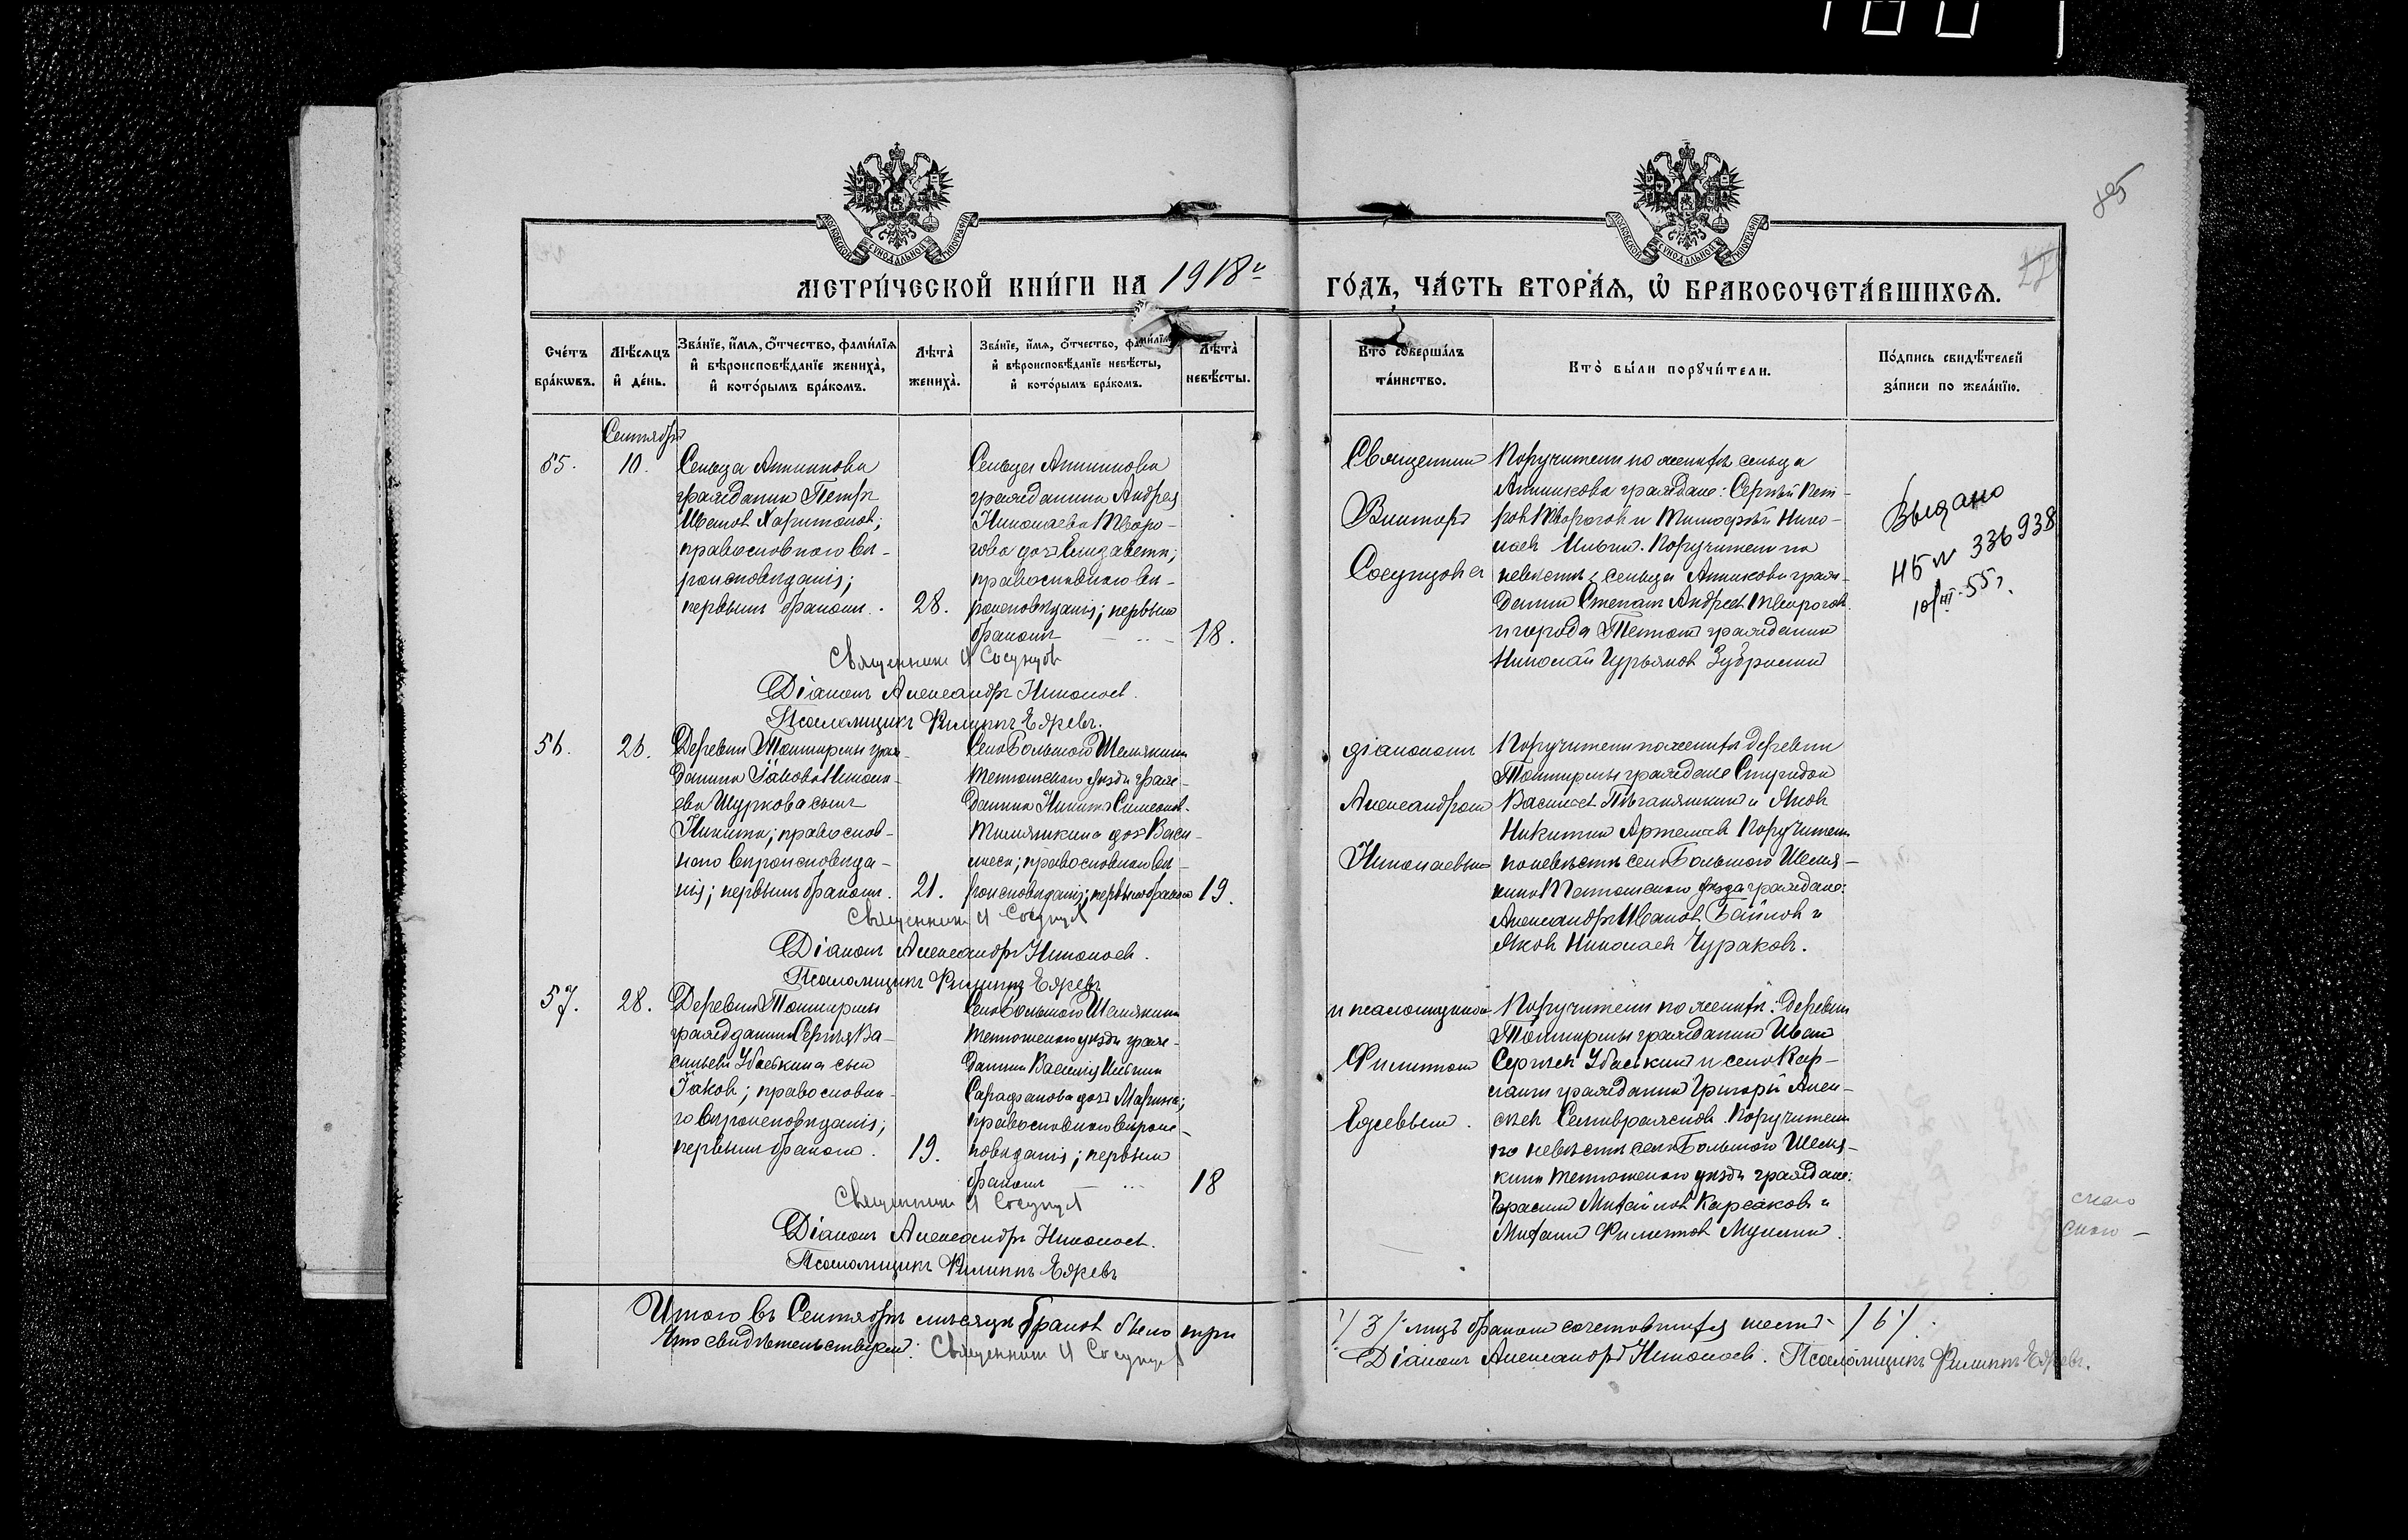 85
27
МОСКОВСКОЙ СѴНОДАЛЬНОЙ ТИПОГРАФІИ
МОСКОВСКОЙ СѴНОДАЛЬНОЙ ТИПОГРАФІИ
МЕТРИ́ЧЕСКОЙ КНИ́ГИ НА 1918й ГО́ДЪ, ЧА́СТЬ ВТОРА́Я, Ѡ БРАКОСОЧЕТА́ВШИХСЯ.
Сче́тъ бра́кѡвъ.
Мѣ́сяцъ и де́нь.
Зва́нїе, и́мя, о́тчество, фами́лїя и вѣроисповѣ́данїе жениха̀, и кото́рымъ бра́комъ.
Лѣта̀ жениха̀.
Зва́нїе, и́мя, о́тчество, фами́лїя и вѣроисповѣ́данїе невѣ́сты, и кото́рымъ бра́комъ.
Лѣта̀ невѣ́сты.
Кто̀ соверша́лъ та́инство.
Кто̀ бы́ли порꙋчи́тели.
По́дпись свидѣ́телей за́писи по жела́нїю.
Сентябрь
55.
10.
Сельца Аниикова
гражданин Петр
Иванов Харитонов;
православного ве-
роисповедания;
первым браком.
28.
Сельца Аниикова
гражданина Андрея
Николаева Творо-
гова дочь Елизавета;
православного ве-
роисповедания; первым
браком
18.
Священник
Виктор
Сосунцова
Поручители по женихе сельца
Аниикова граждане: Сергей Пет-
ров Творогов и Тимофей Нико-
лаев Ильин. Поручители по
невесте: сельца Аниикова граж-
данин Степан Андреев Творогов
и города Тетюш гражданин
Николай Гурьянов Зубрилин
Выдано
НБ № 336938
10/III-55г.
Священник Сосунцов
Дiакон Александр Николаев.
Псаломщикъ Филиппъ
56.
26.
Деревни граж-
данина Iакова Никола-
ева Шуркова сын
Никита; православ-
ного вероисповеда-
ния; первым браком.
21.
Село Большого Шемякина
Тетюшского уезда граж-
данина Никиты Симеонов.
дочь Васи-
лиса; православного ве-
роисповедания; первым браком
19.
дiаконом
Александром
Николаевым
Поручители по женихе деревни
граждане Спиридон
Васильев и Яков
Никитин Артемьев Поручители
по невесте село Большого Шемя-
кина Тетюшского уезда граждане:
Александр Иванов и
Яков Николаев Чураков.
Священник Сосунцов
Дiакон Александр Николаев.
Псаломщикъ Филиппъ
57.
28.
Деревни
гражданина Сергея Ва-
сильева сын
Iаков; православно-
го вероисповедания;
первым браком.
19.
Село Большого Шемякина
Тетюшского уезда граж-
данина Василия Ильина
Сарафанова дочь Марина;
православного вероис-
поведания; первым
браком
18
и псаломщиком
Филиппом
Поручители по женихе: Деревни
гражданин Иван
Сергеев и село Кир-
гражданин Григорий Алек-
сеев Поручители
по невесте село Большого Шемя-
кина Тетюшского уезда граждане:
Герасим Михайлов Карсаков и
Михаил Филиппов Мулин.
Священник Сосунцов
Дiакон Александр Николаев.
Псаломщикъ Филиппъ
Итого въ Сентябрѣ месяце браков было три /3/ лиц браком сочетавшихся шесть /6/.
Что свидѣтельствуем: Священник Сосунцов Дiакон Александръ Николаев. Псаломщикъ Филиппъ